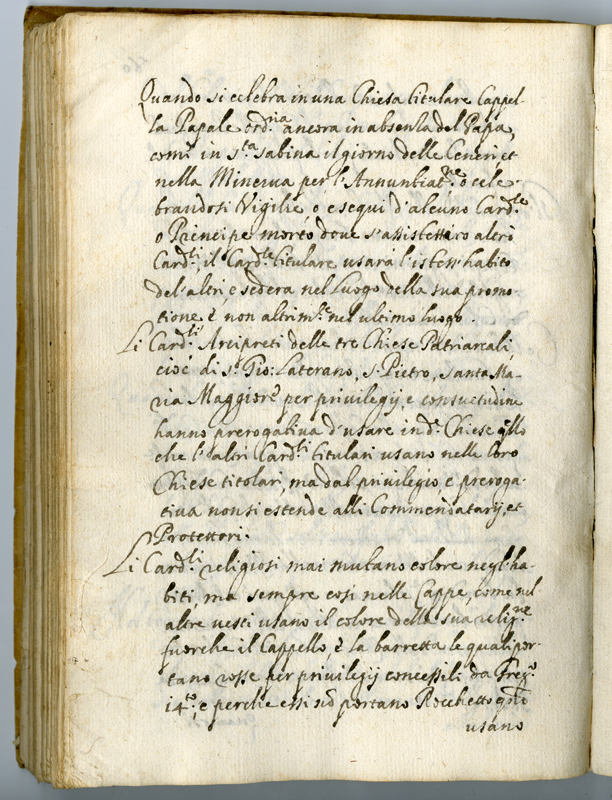 Quando si celebra in una Chiesa titulare Cappel-
la Papale ord.ria ancora in absenza del Papa,
come in S.ta Sabina il giorno delle Ceneri, et
nella Minerva per l'Annuntiat.ne o cele-
brandosi Vigilie, o esequi d'alcuno Card.le
o Prencipe morto doue s'assistessiro altri
Card.li, il Card.le titulare usarà l'istess'habito
del'altri, e sederà nel luogo della sua promo-
tione è non altrim.te nel ultimo luogo.
Li Card.li Arcipreti delle tre Chiese Patriarcali,
cioè di S. Gio: Laterano, S. Pietro, Santa Ma-
ria Maggiore per privilegij, e consuetudine
hanno prerogativa d'usare in d.e Chiese q.llo
che l'altri Card.li titulari usano nelle loro
Chiese titolari, ma dal privilegio e preroga-
tiva non si estende alli Commendatarij, et
Protettori.
Li Card.li religiosi mai mutano colore negl'ha-
biti, ma sempre così nelle Cappe, come nel
altre vesti usano il colore della sua relig.ne
fuorche il Cappello, è la barretta le quali por-
tano rosse per privilegij concessili da Greg.o
14.to, e perche essi nō portano Rocchetto
usano